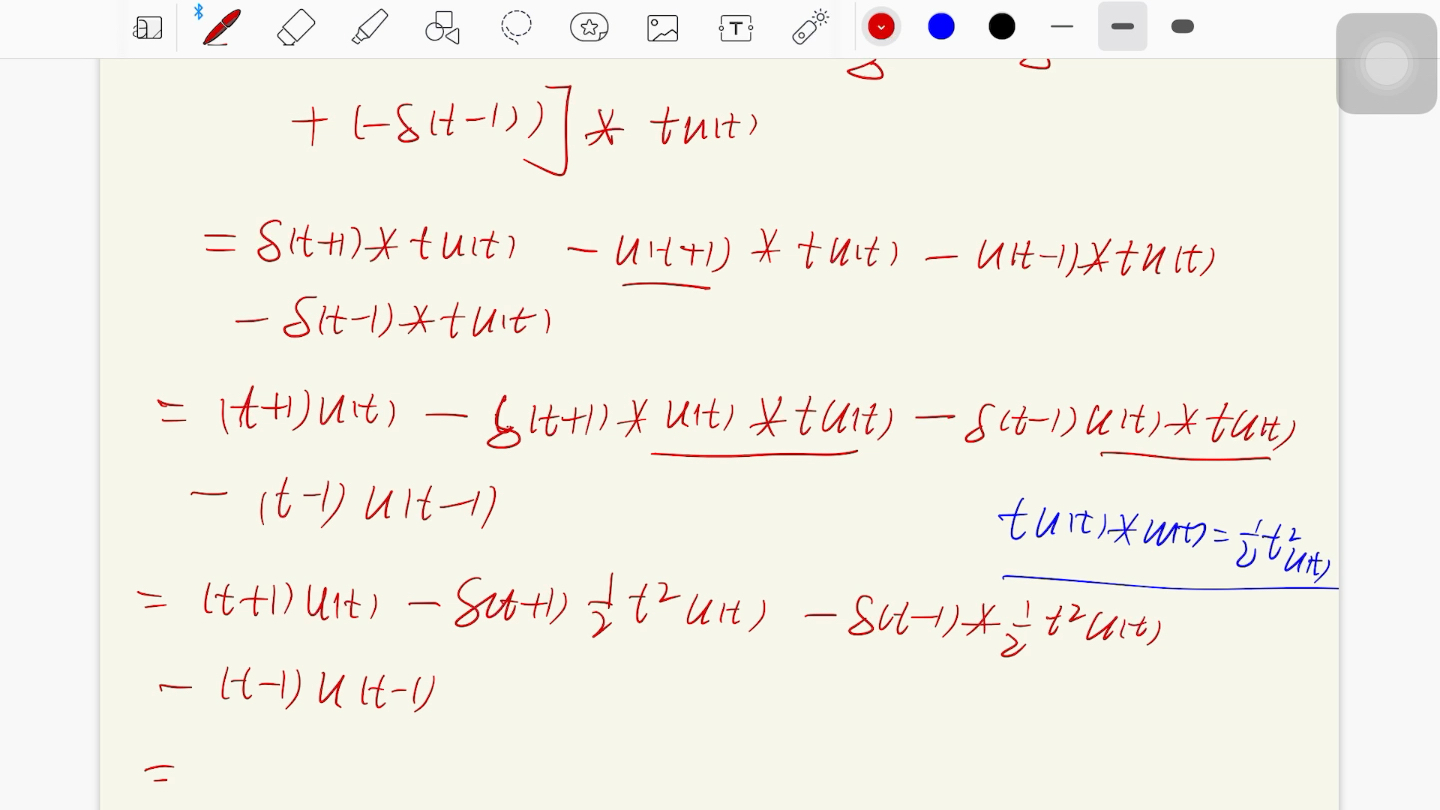 + (-δ(t-1))] * tu(t)
= δ(t+1) * tu(t) - u(t+1) * tu(t) - u(t-1) * tu(t)
- δ(t-1) * tu(t)
= (t+1)u(t) - δ(t+1) * u(t) * tu(t) - δ(t-1)u(t) * tu(t)
- (t-1)u(t-1)
tu(t) * u(t) = 1/2 t²u(t)
= (t+1)u(t) - δ(t+1) 1/2 t²u(t) - δ(t-1) * 1/2 t²u(t)
- (t-1)u(t-1)
=